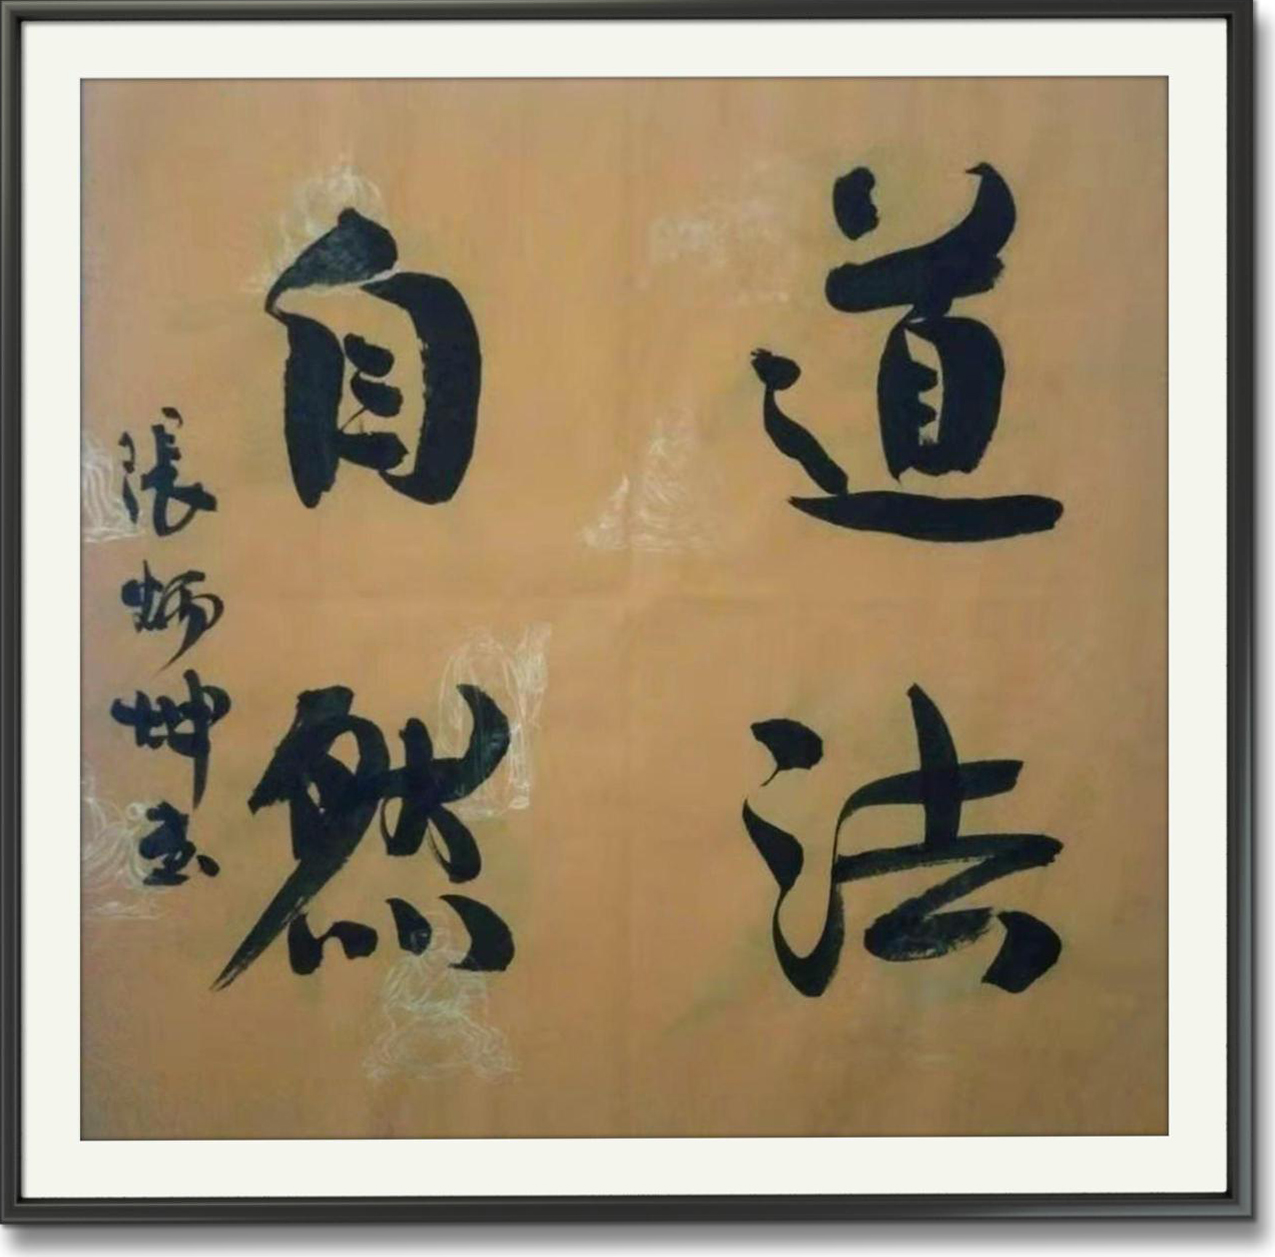 道法
自然
張炳坤书